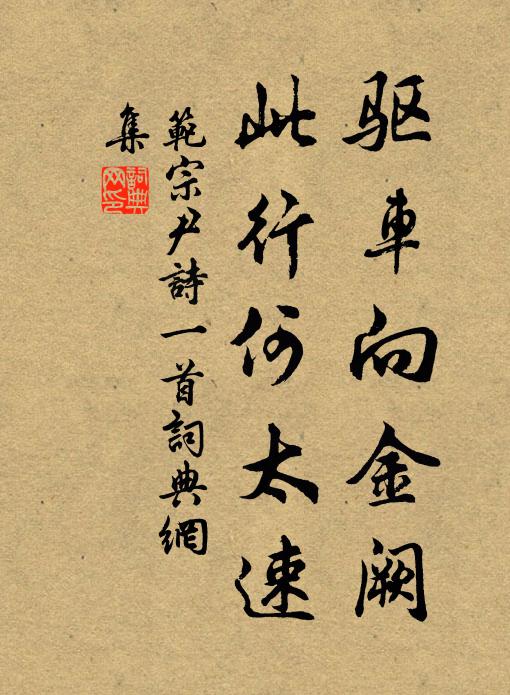 驱車向金阙
此行何太速
範宗尹詩一首詞典網
集
詞典
网印